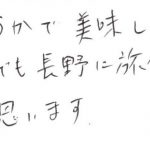 かで美味し
でも長野に旅
思います.